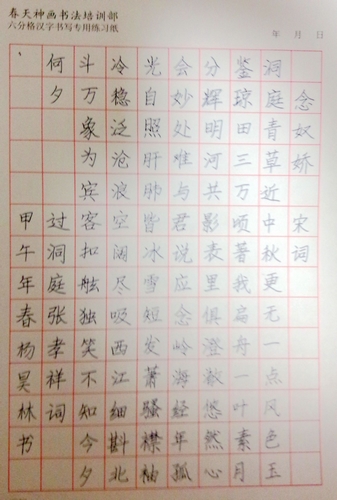 春天神画书法培训部
六分格汉字书写专用练习纸
年 月 日
念奴娇 宋词
洞庭青草近中秋更无一点风色玉
鉴琼田三万顷著我扁舟一叶素月
分辉明河共影表里俱澄澈悠然心
会妙处难与君说应念岭海经年孤
光自照肝肺皆冰雪短发萧骚襟袖
冷稳泛沧浪空阔尽吸西江细斟北
斗万象为宾客扣舷独笑不知今夕
何夕 过洞庭张孝祥词
甲午年春杨昊林书